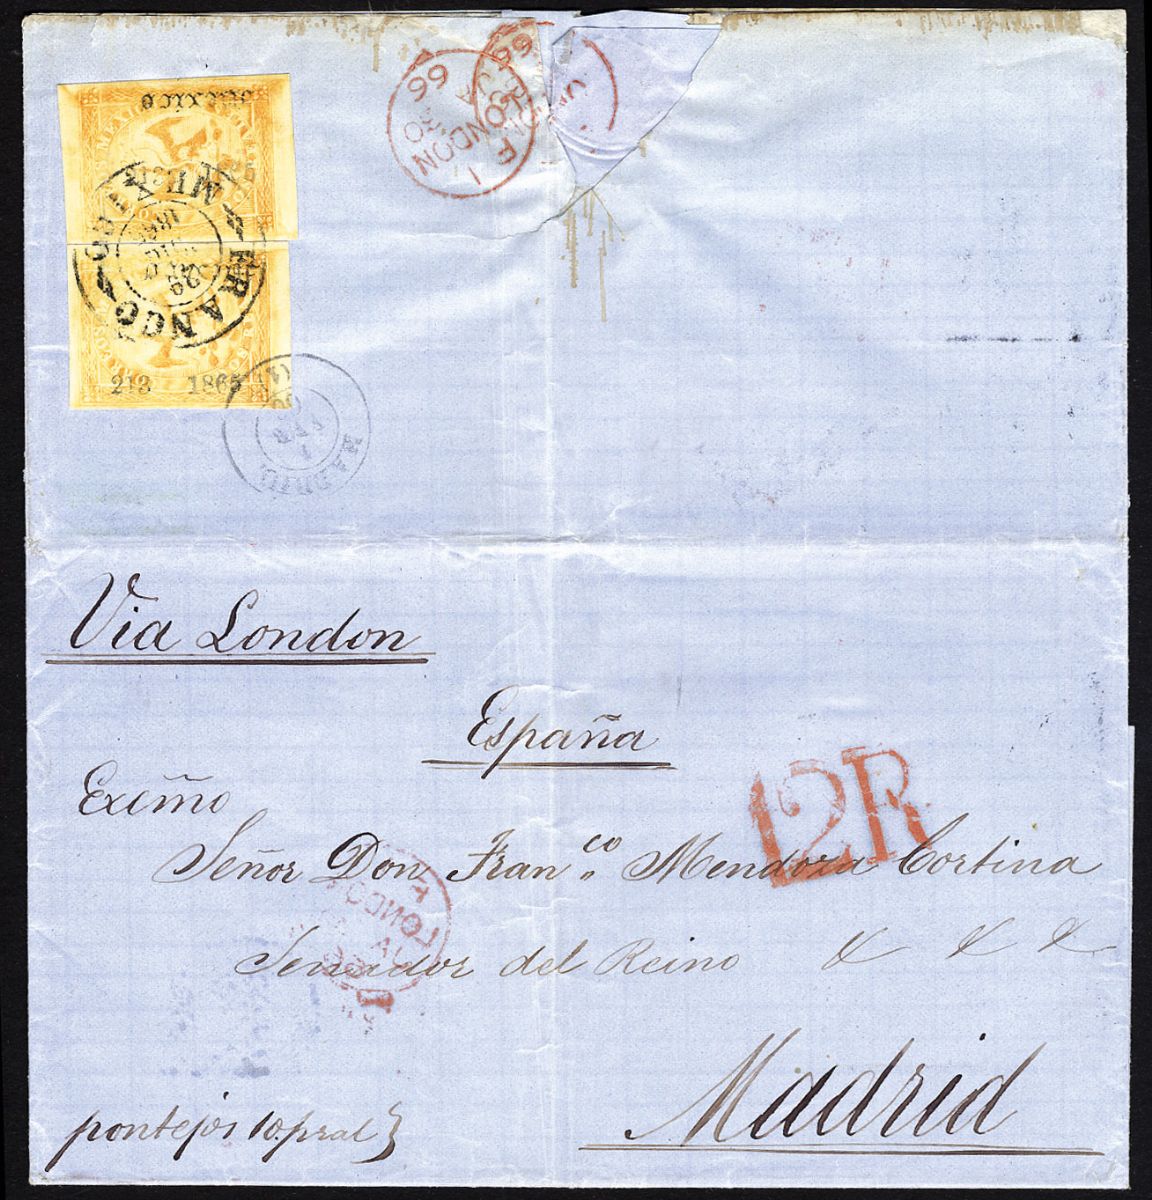 MEXICO
FRANCO MEXICO
29
213 1865
LONDON
30
66
MADRID
Via London
España
Exc̃mo
Señor Don Fran.co Mendoza Cortina
Senador del Reino & & &
12R
LONDON
Madrid
pontejos 10. pral